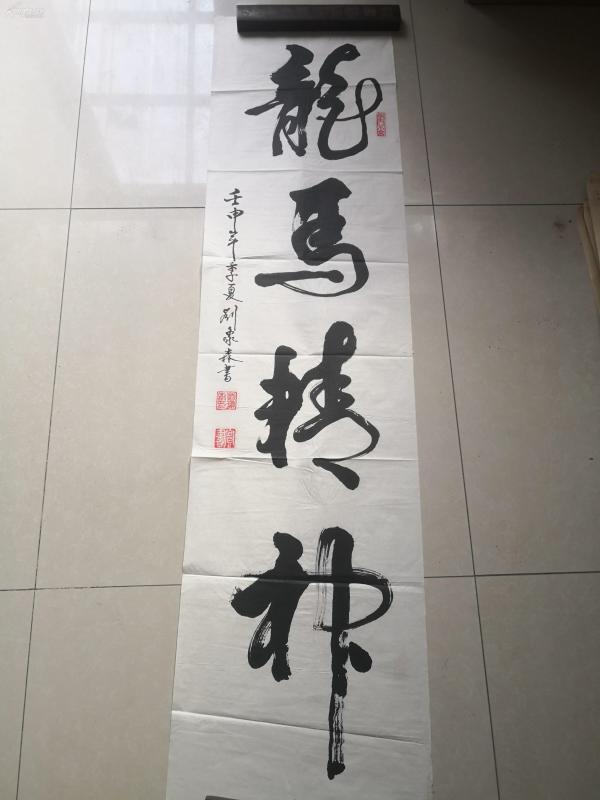 龍馬精神
壬申年季夏劉泉森書